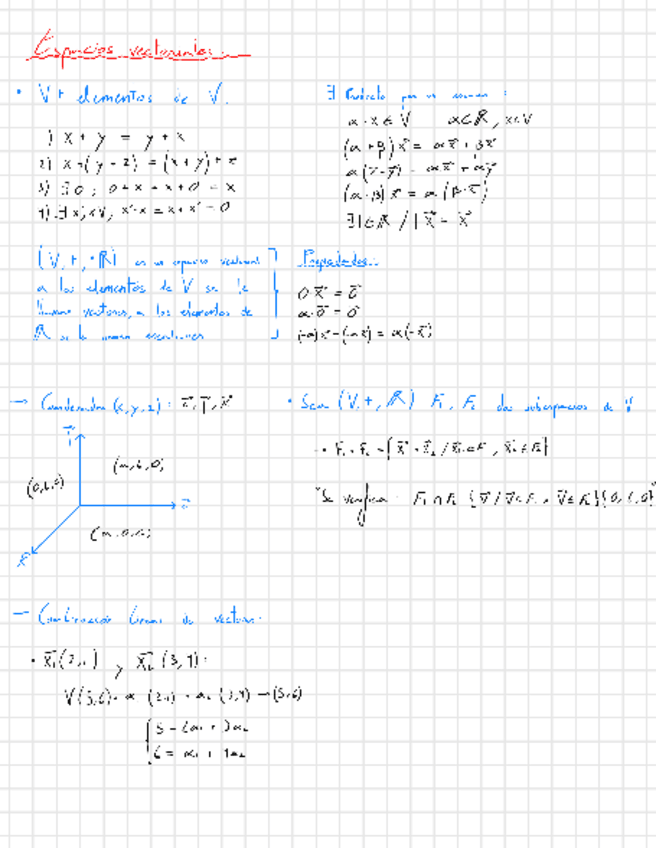 Espacios vectoriales.
• V + elementos de V.
1) x + y = y + x
2) x+(y+z) = (x+y)+z
3) ∃ 0 ; 0+x = x+0 = x
4) ∃ x', x∈V, x'+x = x+x' = 0
∃ Producto por un escalar :
α·x ∈ V α∈ℝ, x∈V
(α+β)x⃗ = αx⃗ + βx⃗
α(x⃗+y⃗) = αx⃗ + αy⃗
(α·β)x⃗ = α(β·x⃗)
∃1∈ℝ / 1x⃗ = x⃗
(V,+,·ℝ) es un espacio vectorial
a los elementos de V se le
llaman vectores, a los elementos de
ℝ se le llaman escalares
Propiedades:
0·x⃗ = 0⃗
α·0⃗ = 0⃗
(-α)x⃗ = -(αx⃗) = α(-x⃗)
→ Coordenadas (x,y,z) :
(0,b,0)
• Sean (V,+,ℝ) F₁, F₂ dos subespacios de V
Se verifica
→ Combinación lineal de vectores:
• x⃗₁(2,1) y x⃗₂(3,4):
V(5,6) = α₁(2,1) + α₂(3,4) → (5,6)
5 = 2α₁ + 3α₂
6 = α₁ + 4α₂